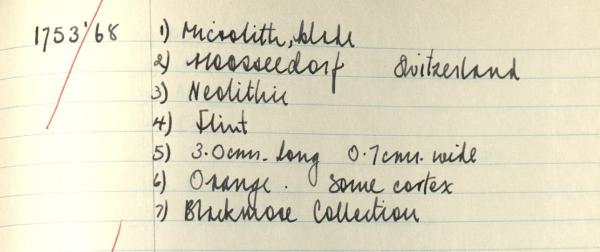 1753'68 1) Microlith, blade
2) Moosseedorf Switzerland
3) Neolithic
4) Flint
5) 3.0cms. long 0.7cms. wide
6) Orange. Some cortex
7) Blackmore Collection